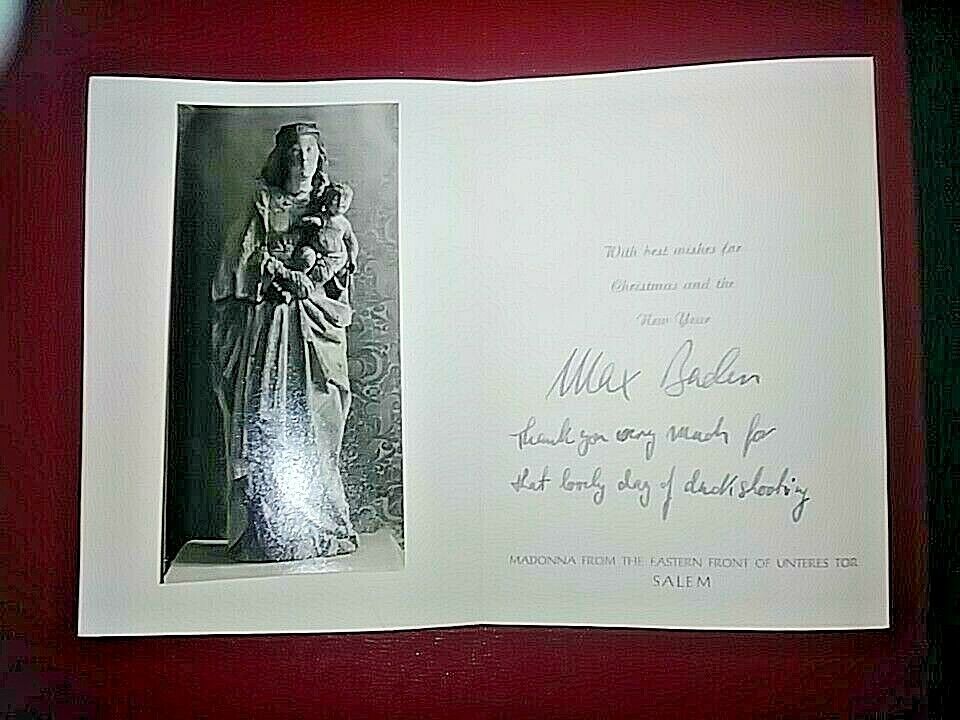 With best wishes for
Christmas and the
New Year
Max Baden
Thank you very much for
that lovely day of duckshooting
MADONNA FROM THE EASTERN FRONT OF UNTERES TOR
SALEM